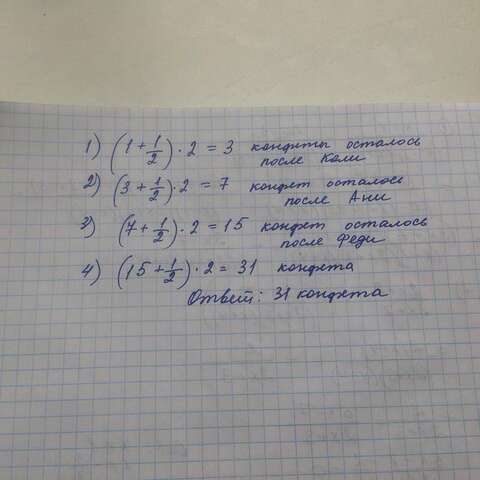 1) (1 + 1/2) · 2 = 3 конфеты осталось
после Коли
2) (3 + 1/2) · 2 = 7 конфет осталось
после Ани
3) (7 + 1/2) · 2 = 15 конфет осталось
после Феди
4) (15 + 1/2) · 2 = 31 конфета
Ответ: 31 конфета